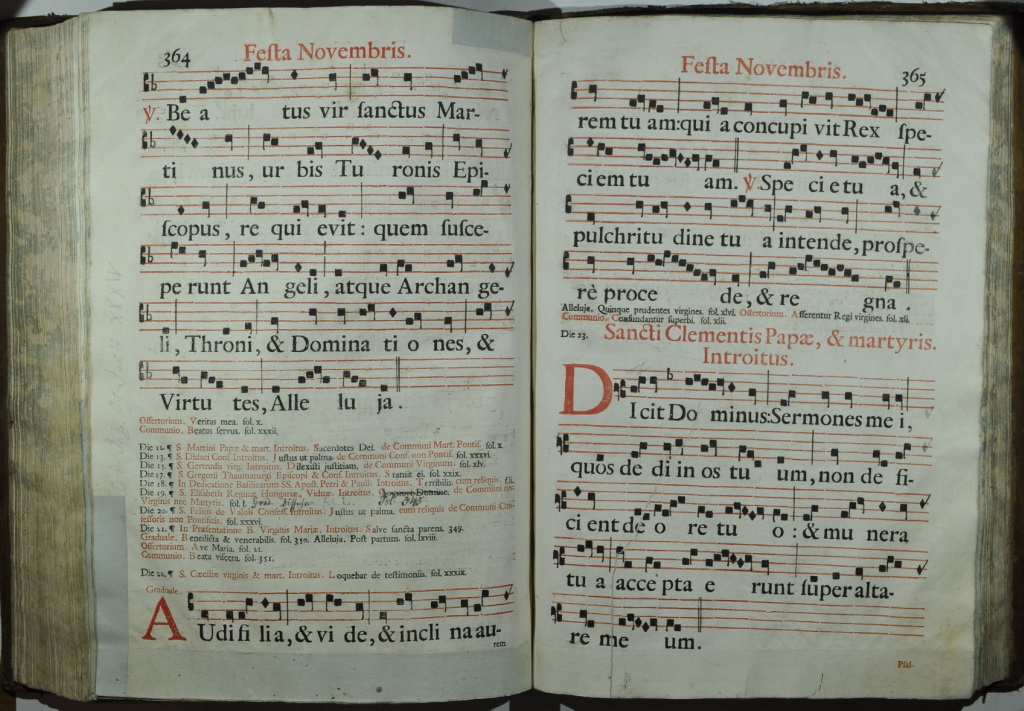 364
Feſta Novembris.
℣. Be a tus vir ſanctus Mar-
ti nus, ur bis Tu ronis Epi-
ſcopus, re qui evit: quem ſuſce-
pe runt An geli, atque Archan ge-
li, Throni, & Domina ti o nes, &
Virtu tes, Alle lu ja.
Offertorium. Veritas mea. fol. x.
Communio. Beatus ſervus. fol. xxxii.
Die 12. ¶ S. Martini Papæ & mart. Introitus. Sacerdotes Dei. de Communi Mart. Pontif. fol. x.
Die 13. ¶ S. Didaci Conf. Introitus. Juſtus ut palma. de Communi Conf. non Pontif. fol. xxxvi.
Die 15. ¶ S. Gertrudis virg. Introitus. Dilexiſti juſtitiam. de Communi Virginum. fol. xlv.
Die 17. ¶ S. Gregorii Thaumaturgi Epiſcopi & Conf. Introitus. Statuit ei. fol. xxix.
Die 18. ¶ In Dedicatione Baſilicarum SS. Apoſt. Petri & Pauli. Introitus. Terribilis. cum reliquis.
Die 19. ¶ S. Eliſabeth Reginæ Hungariæ, Viduæ. Introitus. de Communi nec
Virginis nec Martyris. fol. l.
Die 20. ¶ S. Felicis de Valois Confeſſ. Introitus. Juſtus ut palma. cum reliquis de Communi Con-
feſſoris non Pontificis. fol. xxxvi.
Die 21. ¶ In Præſentatione B. Virginis Mariæ. Introitus. Salve ſancta parens. 349.
Graduale. Benedicta & venerabilis. fol. 350. Alleluja. Poſt partum. fol. lxviii.
Offertorium. Ave Maria. fol. 21.
Communio. Beata viſcera. fol. 351.
Die 22. ¶ S. Cæciliæ virginis & mart. Introitus. Loquebar de teſtimoniis. fol. xxxix.
Graduale.
AUdi fi lia, & vi de, & incli na au-
rem
Feſta Novembris.
365
rem tu am: qui a concupi vit Rex ſpe-
ci em tu am. ℣. Spe ci e tu a, &
pulchritu dine tu a intende, proſpe-
rè proce de, & re gna.
Alleluja. Quinque prudentes virgines. fol. xlvi. Offertorium. Afferentur Regi virgines. fol. xli.
Communio. Confundantur ſuperbi. fol. xlii.
Die 23. Sancti Clementis Papæ, & martyris.
Introitus.
DIcit Do minus: Sermones me i,
quos de di in os tu um, non de fi-
ci ent de o re tu o: & mu nera
tu a acce pta e runt ſuper alta-
re me um.
Pſal-